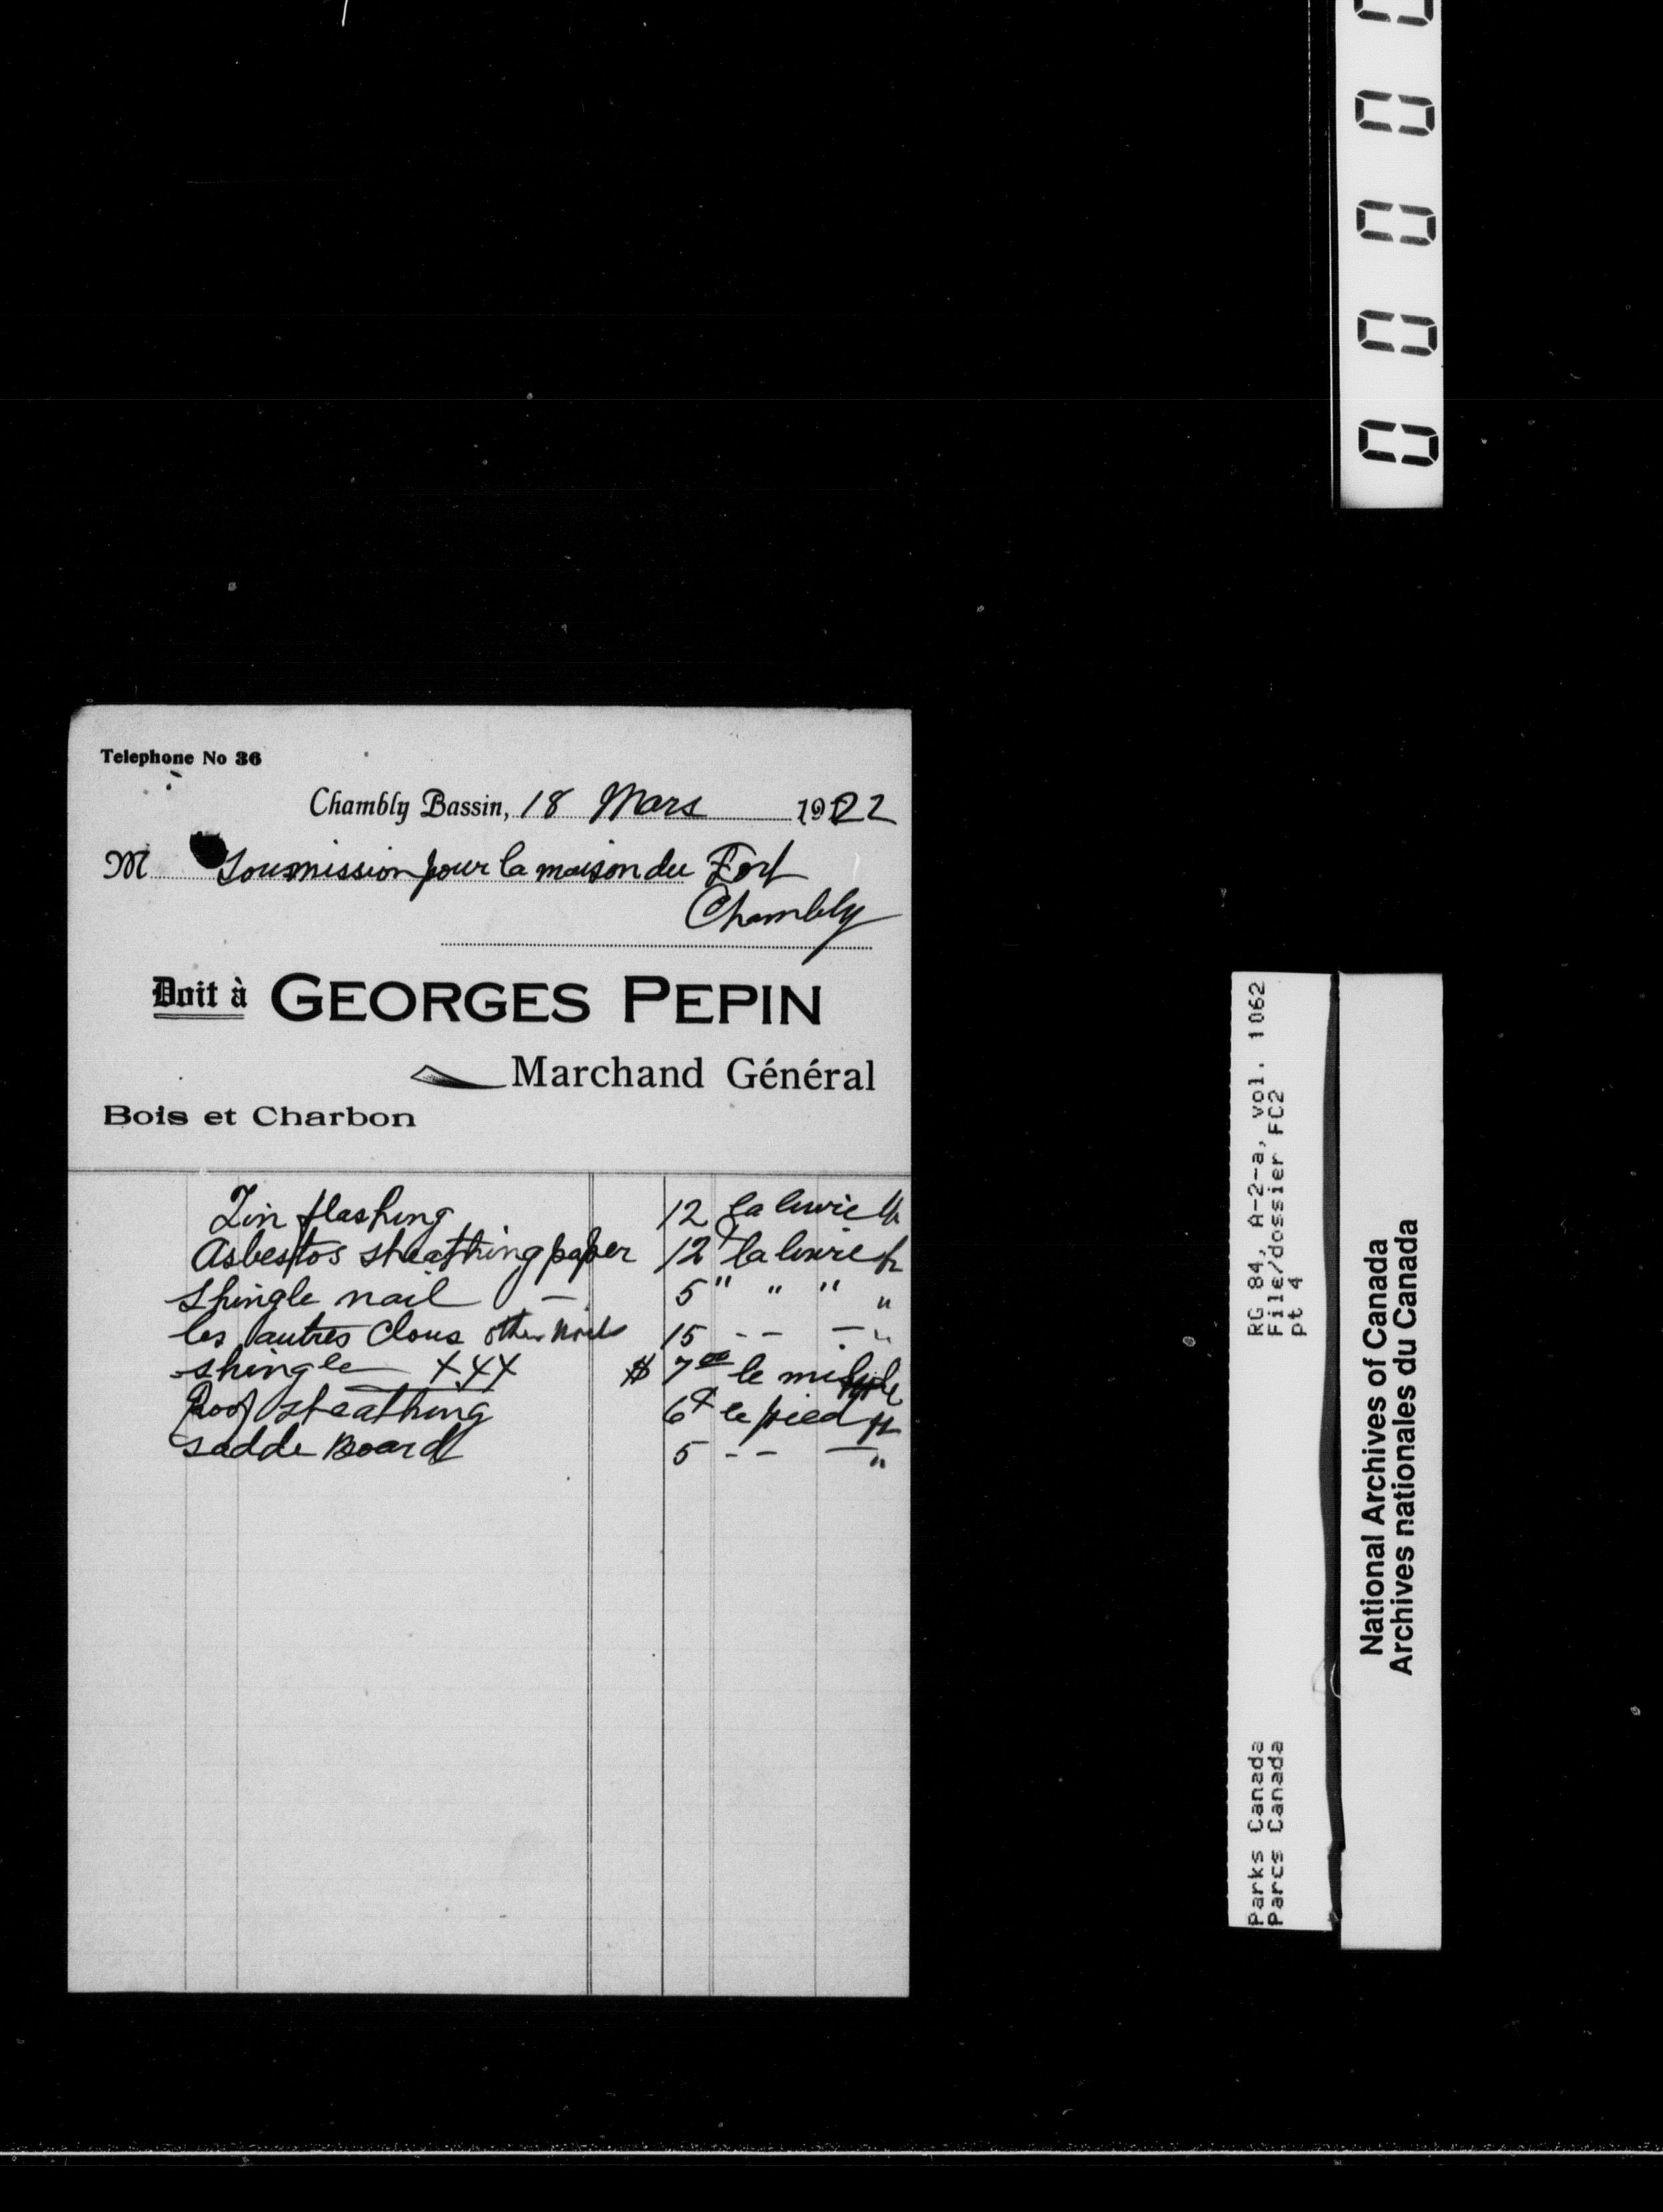 Telephone No 36
Chambly Bassin, 18 Mars 1922
M Soumission pour la maison du Fort
Chambly
Doit à GEORGES PEPIN
Marchand Général
Bois et Charbon
Tin flashing 12 la livre lb
Asbestos sheathing paper 12 la livre lb
Shingle nail — 5 " " " "
les autres Clous other nails 15 - - — "
shingle XXX $ 7.00 le mille
Roof sheathing 6¢ le pied ft
sadde Board 5 - - — "
0 0 0 0 0
RG 84, A-2-a, vol. 1062
File/dossier FC2
pt 4
Parks Canada
Parcs Canada
National Archives of Canada
Archives nationales du Canada